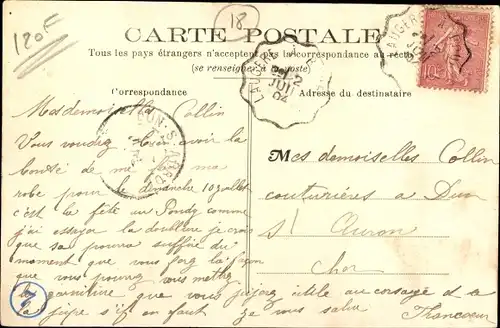 120F
18
CARTE POSTALE
Tous les pays étrangers n'acceptent pas la correspondance au recto
(se renseigner à la poste)
Correspondance
Adresse du destinataire
Mesdemoiselles Collin
Vous voudrez bien avoir la
bonté de me ma
robe pour le dimanche 10 juillet
c'est la fête au comme
j'ai essayé la doublure je crois
que sa pourra suffire du
moment que vous la façon
que vous pourrez vous mettez
la garniture que vous jugerez utile au corsage et a
la jupe s'il en faut je vous salue Francoeur
Mes demoiselles Collin
couturières a Dun
s/ Auron
Cher
10